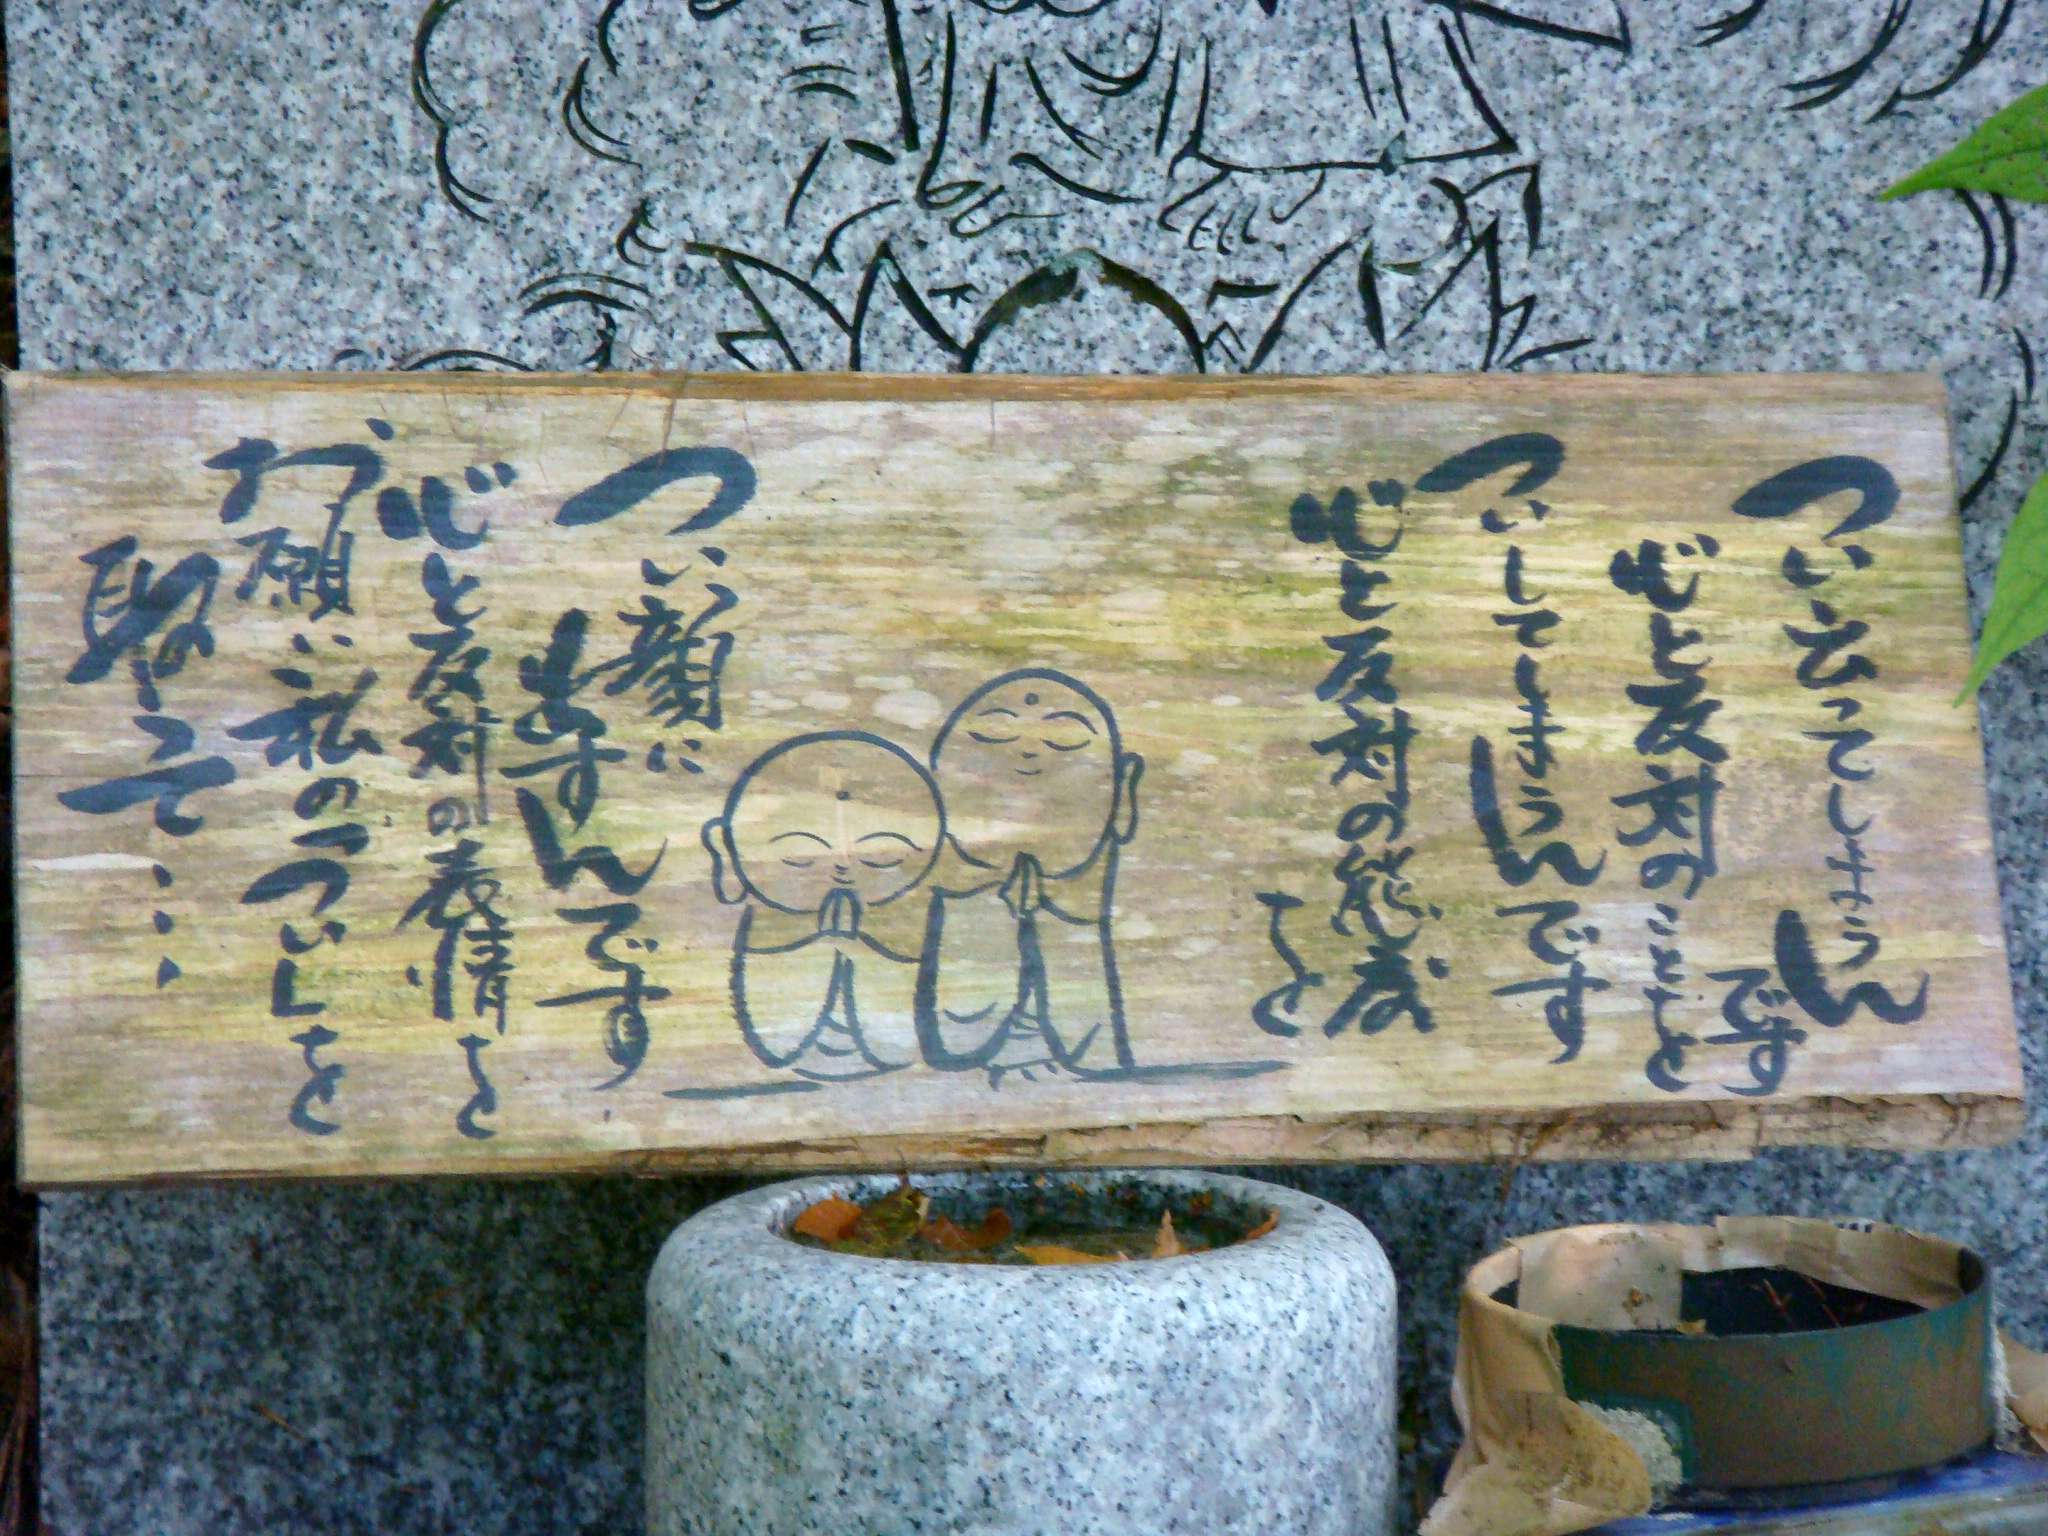 つい云ってしまうん
です
心と反対のことを
ついしてしまうんです
心と反対の態度
を
つい顔に
出すんです
心と反対の表情を
お願い私の「つい」を
取って…